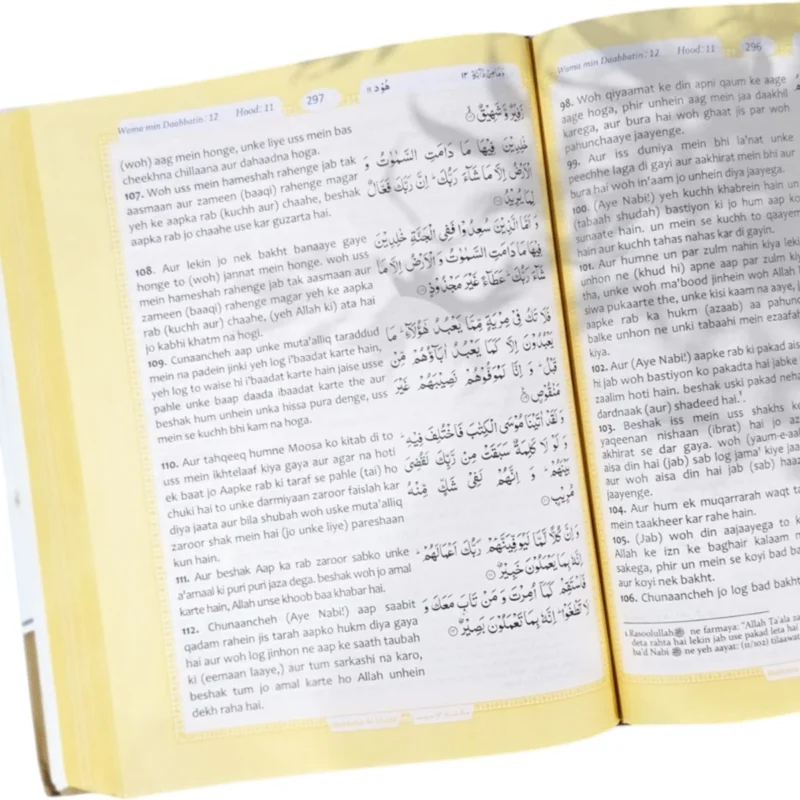 Wama min Daabbatin: 12 Hood: 11 296
98. Woh qiyaamat ke din apni qaum ke aage
aage hoga, phir unhein aag mein jaa daakhil
karega, aur bura hai woh ghaat jis par woh
pahunchaaye jaayenge.
99. Aur iss duniya mein bhi la'nat unke
peechhe laga di gayi aur aakhirat mein bhi aur
bura hai woh in'aam jo unhein diya jaayega.
100. (Aye Nabi!) yeh kuchh khabrein hain un
(tabaah shudah) bastiyon ki jo hum aap ko
sunaate hain. un mein se kuchh to qaayem
hain aur kuchh tahas nahas kar di gayin.
101. Aur humne un par zulm nahin kiya lekin
unhon ne (khud hi) apne aap par zulm
tha, unke woh ma'bood jinhein woh Allah
siwa pukaarte the, unke kisi kaam na aaye,
aapke rab ka hukm (azaab) aa pahun
balke unhon ne unki tabaahi mein ezaafa
kiya.
102. Aur (Aye Nabi!) aapke rab ki pakad ais
hi jab woh bastiyon ko pakadta hai jabke
zaalim hoti hain. beshak uski pakad neha
dardnaak (aur) shadeed hai.¹
103. Beshak iss mein uss shakhs ke
yaqeenan nishaan (ibrat) hai jo az
akhirat se dar gaya. woh (yaum-e-aa
aisa din hai (jab) sab log jama' kiye jaa
aur woh aisa din hai jab (sab) haaz
jaayenge.
104. Aur hum ek muqarrarah waqt ta
mein taakheer kar rahe hain.
105. (Jab) woh din aajaayega to k
Allah ke izn ke baghair kalaam n
sakega, phir un mein se koyi bad ba
aur koyi nek bakht.
106. Chunaancheh jo log bad bakht
1. Rasoolullah ﷺ ne farmaya: "Allah Ta'ala za
deta rahta hai lekin jab use pakad leta hai
ba'd Nabi ﷺ ne yeh aayat: (11/102) tilaawat
Wama min Daabbatin: 12 Hood: 11 297 هُوْد ١١ وَمَا مِنْ دَآبَّةٍ ١٢
(woh) aag mein honge, unke liye uss mein bas
cheekhna chillaana aur dahaadna hoga.
107. Woh uss mein hameshah rahenge jab tak
aasmaan aur zameen (baaqi) rahenge magar
yeh ke aapka rab (kuchh aur) chaahe, beshak
aapka rab jo chaahe use kar guzarta hai.
108. Aur lekin jo nek bakht banaaye gaye
honge to (woh) jannat mein honge. woh uss
mein hameshah rahenge jab tak aasmaan aur
zameen (baaqi) rahenge magar yeh ke aapka
rab (kuchh aur) chaahe, (yeh Allah ki) ata hai
jo kabhi khatm na hogi.
109. Cunaancheh aap unke muta'alliq taraddud
mein na padein jinki yeh log i'baadat karte hain,
yeh log to waise hi i'baadat karte hain jaise usse
pahle unke baap daada ibaadat karte the aur
beshak hum unhein unka hissa pura denge, uss
mein se kuchh bhi kam na hoga.
110. Aur tahqeeq humne Moosa ko kitab di to
uss mein ikhtelaaf kiya gaya aur agar na hoti
ek baat jo Aapke rab ki taraf se pahle (tai) ho
chuki hai to unke darmiyaan zaroor faislah kar
diya jaata aur bila shubah woh uske muta'alliq
zaroor shak mein hai (jo unke liye) pareshaan
kun hain.
111. Aur beshak Aap ka rab zaroor sabko unke
a'amaal ki puri puri jaza dega. beshak woh jo amal
karte hain, Allah unse khoob baa khabar hai.
112. Chunaancheh (Aye Nabi!) aap saabit
qadam rahein jis tarah aapko hukm diya gaya
hai aur woh log jinhon ne aap ke saath taubah
ki (eemaan laaye,) aur tum sarkashi na karo,
beshak tum jo amal karte ho Allah unhein
dekh raha hai.
زَفِيْرٌ وَّ شَهِيْقٌ ۝
خٰلِدِيْنَ فِيْهَا مَا دَامَتِ السَّمٰوٰتُ وَ
الْاَرْضُ اِلَّا مَا شَآءَ رَبُّكَ ؕ اِنَّ رَبَّكَ فَعَّالٌ
لِّمَا يُرِيْدُ ۝
وَ اَمَّا الَّذِيْنَ سُعِدُوْا فَفِى الْجَنَّةِ خٰلِدِيْنَ
فِيْهَا مَا دَامَتِ السَّمٰوٰتُ وَ الْاَرْضُ اِلَّا مَا
شَآءَ رَبُّكَ ؕ عَطَآءً غَيْرَ مَجْذُوْذٍ ۝
فَلَا تَكُ فِيْ مِرْيَةٍ مِّمَّا يَعْبُدُ هٰٓؤُلَآءِ ؕ مَا
يَعْبُدُوْنَ اِلَّا كَمَا يَعْبُدُ اٰبَآؤُهُمْ مِّنْ
قَبْلُ ؕ وَ اِنَّا لَمُوَفُّوْهُمْ نَصِيْبَهُمْ غَيْرَ
مَنْقُوْصٍ ۝
وَ لَقَدْ اٰتَيْنَا مُوْسَى الْكِتٰبَ فَاخْتُلِفَ فِيْهِ ؕ
وَ لَوْ لَا كَلِمَةٌ سَبَقَتْ مِنْ رَّبِّكَ لَقُضِىَ
بَيْنَهُمْ ؕ وَ اِنَّهُمْ لَفِيْ شَكٍّ مِّنْهُ
مُرِيْبٍ ۝
وَ اِنَّ كُلًّا لَّمَّا لَيُوَفِّيَنَّهُمْ رَبُّكَ اَعْمَالَهُمْ ؕ
اِنَّهٗ بِمَا يَعْمَلُوْنَ خَبِيْرٌ ۝
فَاسْتَقِمْ كَمَآ اُمِرْتَ وَ مَنْ تَابَ مَعَكَ وَ
لَا تَطْغَوْا ؕ اِنَّهٗ بِمَا تَعْمَلُوْنَ بَصِيْرٌ ۝